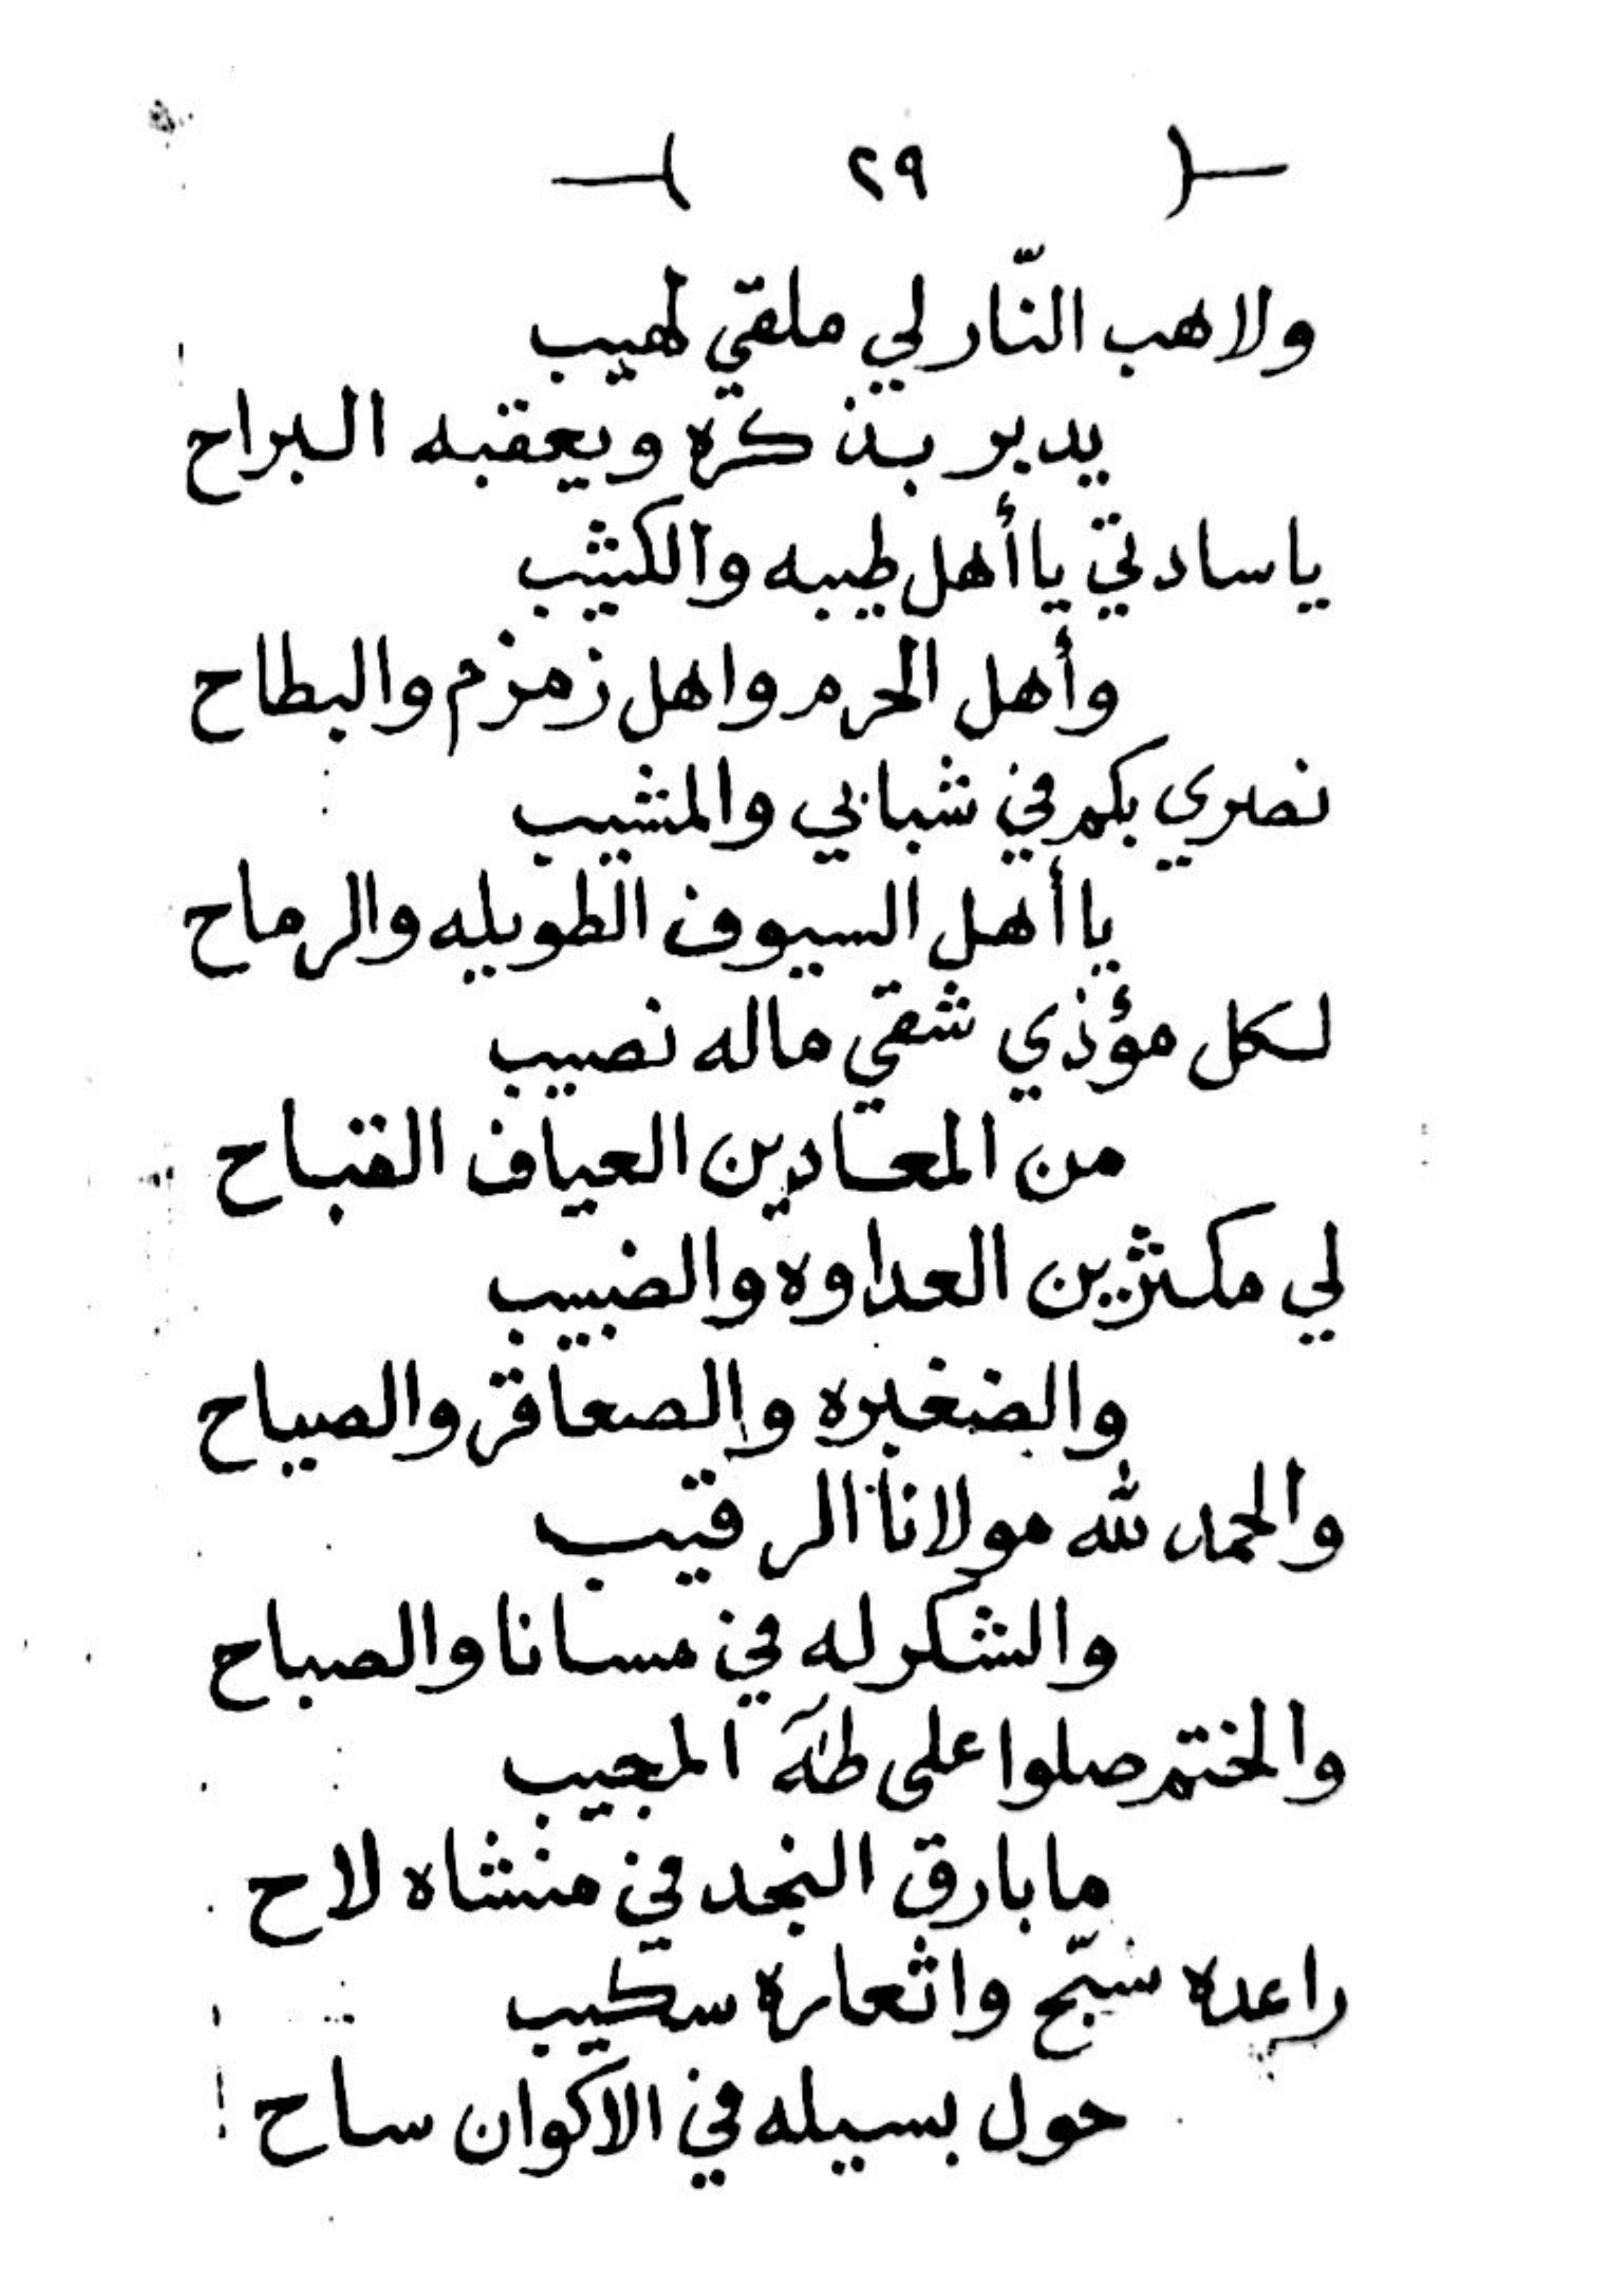 —( ٢٩ )—
ولاهب النّار لي ملقي لهيب
يدبر بذكره ويعقبه البراح
ياسادتي ياأهل طيبه والكثيب
وأهل الحرم واهل زمزم والبطاح
نصري بكم في شبابي والمشيب
ياأهل السيوف الطويله والرماح
لكل مؤذي شقي ماله نصيب
من المعادين العياف القباح
لي مكثرين العداوه والضبيب
والضغبره والصعاقر والصياح
والحمد لله مولانا الرقيب
والشكر له في مسانا والصباح
والختم صلوا على طه المجيب
مابارق النجد في منشاه لاح
راعده سبّح واثعاره سكيب
حول بسيله في الاكوان ساح